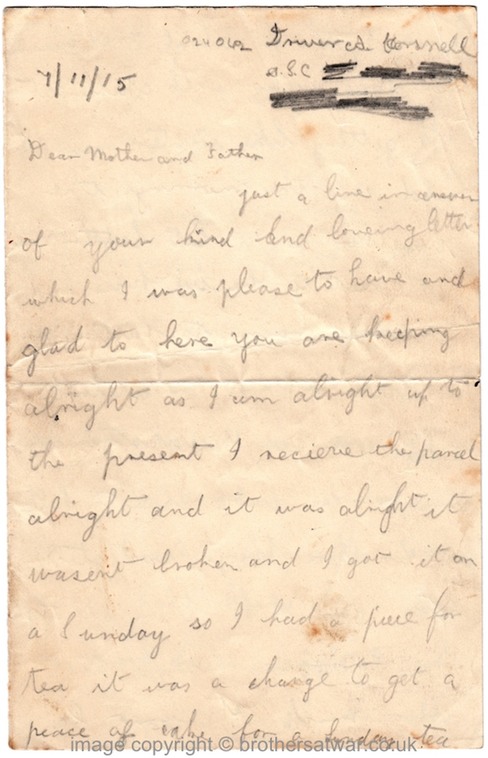 024062 Driver cd Cornell
7/11/15
A.S.C
Dear Mother and Father
just a line in answer
of your kind and loveing letter
which I was please to have and
glad to here you are keeping
alright as I am alright up to
the present I recieve the parcel
alright and it was alright it
wasent broken and I got it on
a Sunday so I had a piece for
tea it was a change to get a
peace of cake for a Sunday tea
image copyright © brothersatwar.co.uk